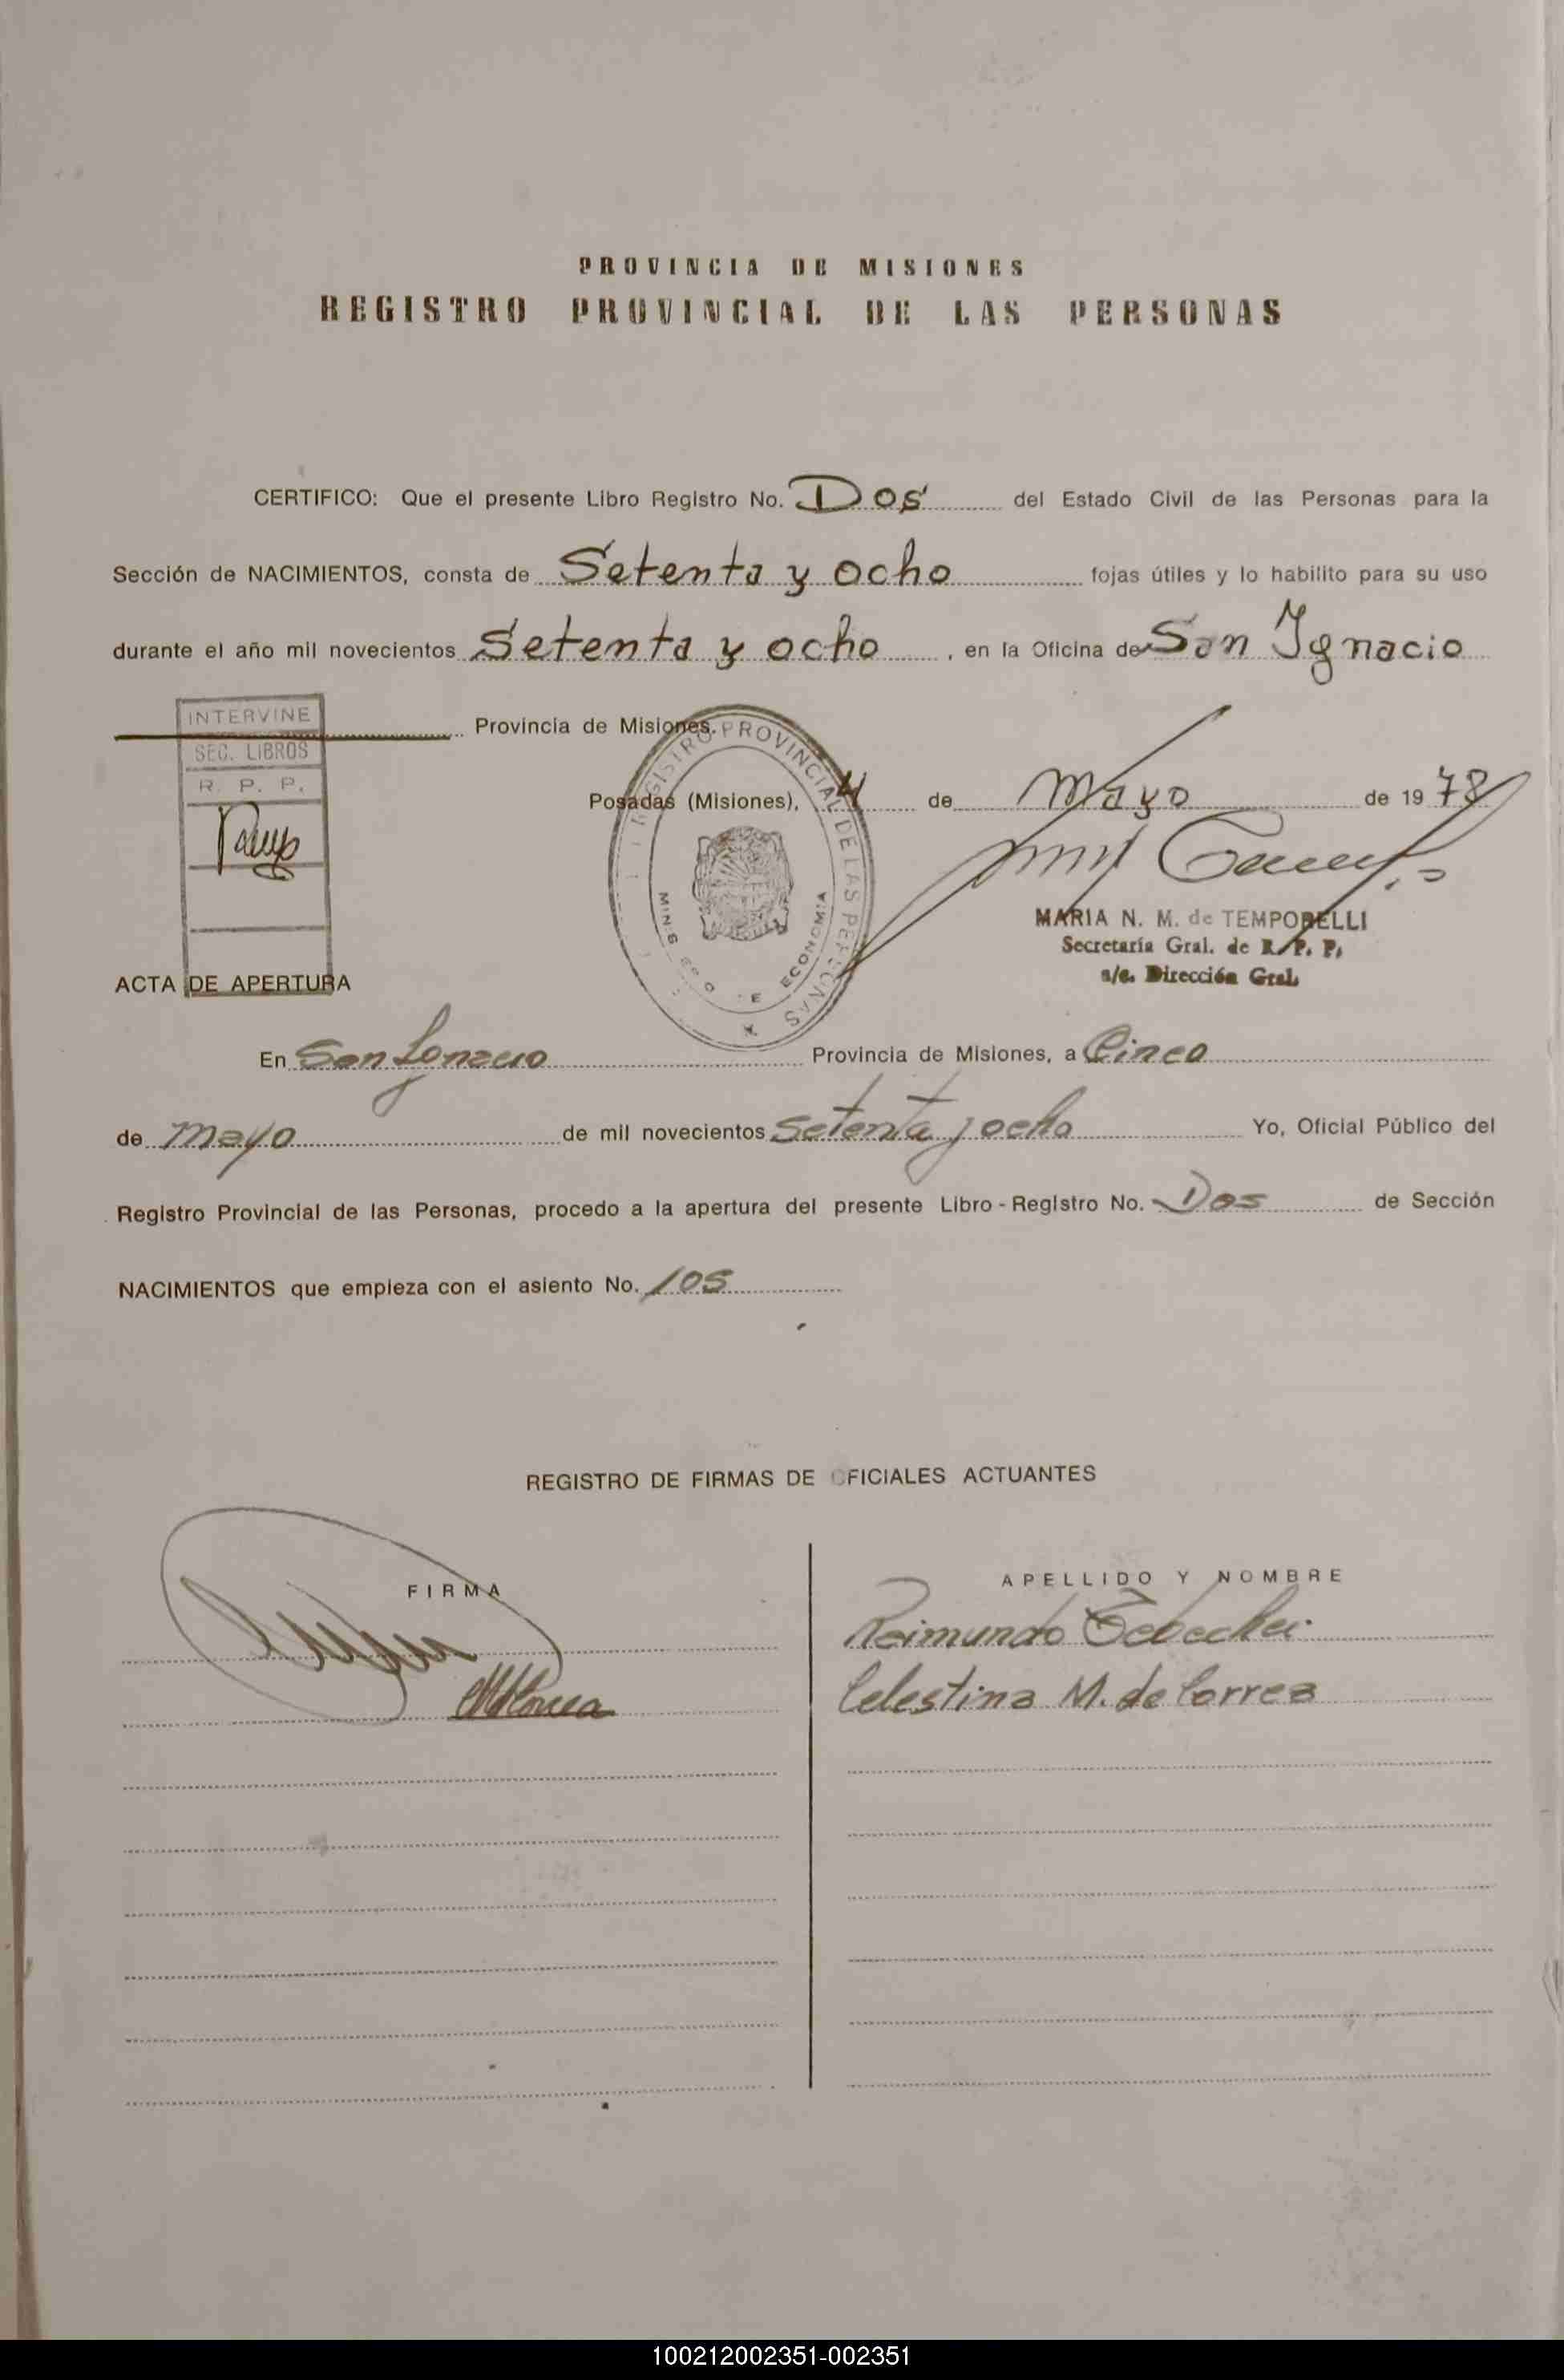 PROVINCIA DE MISIONES
REGISTRO PROVINCIAL DE LAS PERSONAS
CERTIFICO: Que el presente Libro Registro No. Dos del Estado Civil de las Personas para la
Sección de NACIMIENTOS, consta de Setenta y ocho fojas útiles y lo habilito para su uso
durante el año mil novecientos Setenta y ocho, en la Oficina de San Ignacio
Provincia de Misiones.
INTERVINE
SEC. LIBROS
R. P. P.
REGISTRO PROVINCIAL DE LAS PERSONAS
MINISTERIO DE ECONOMIA
Posadas (Misiones), 4 de Mayo de 1978
MARIA N. M. de TEMPORELLI
Secretaria Gral. de R. P. P.
a/c. Dirección Gral.
ACTA DE APERTURA
En San Ignacio Provincia de Misiones, a Cinco
de mayo de mil novecientos setenta y ocho Yo, Oficial Público del
Registro Provincial de las Personas, procedo a la apertura del presente Libro - Registro No. Dos de Sección
NACIMIENTOS que empieza con el asiento No. 105
REGISTRO DE FIRMAS DE OFICIALES ACTUANTES
FIRMA
APELLIDO Y NOMBRE
Raimundo
Celestina M. de Correa
100212002351-002351